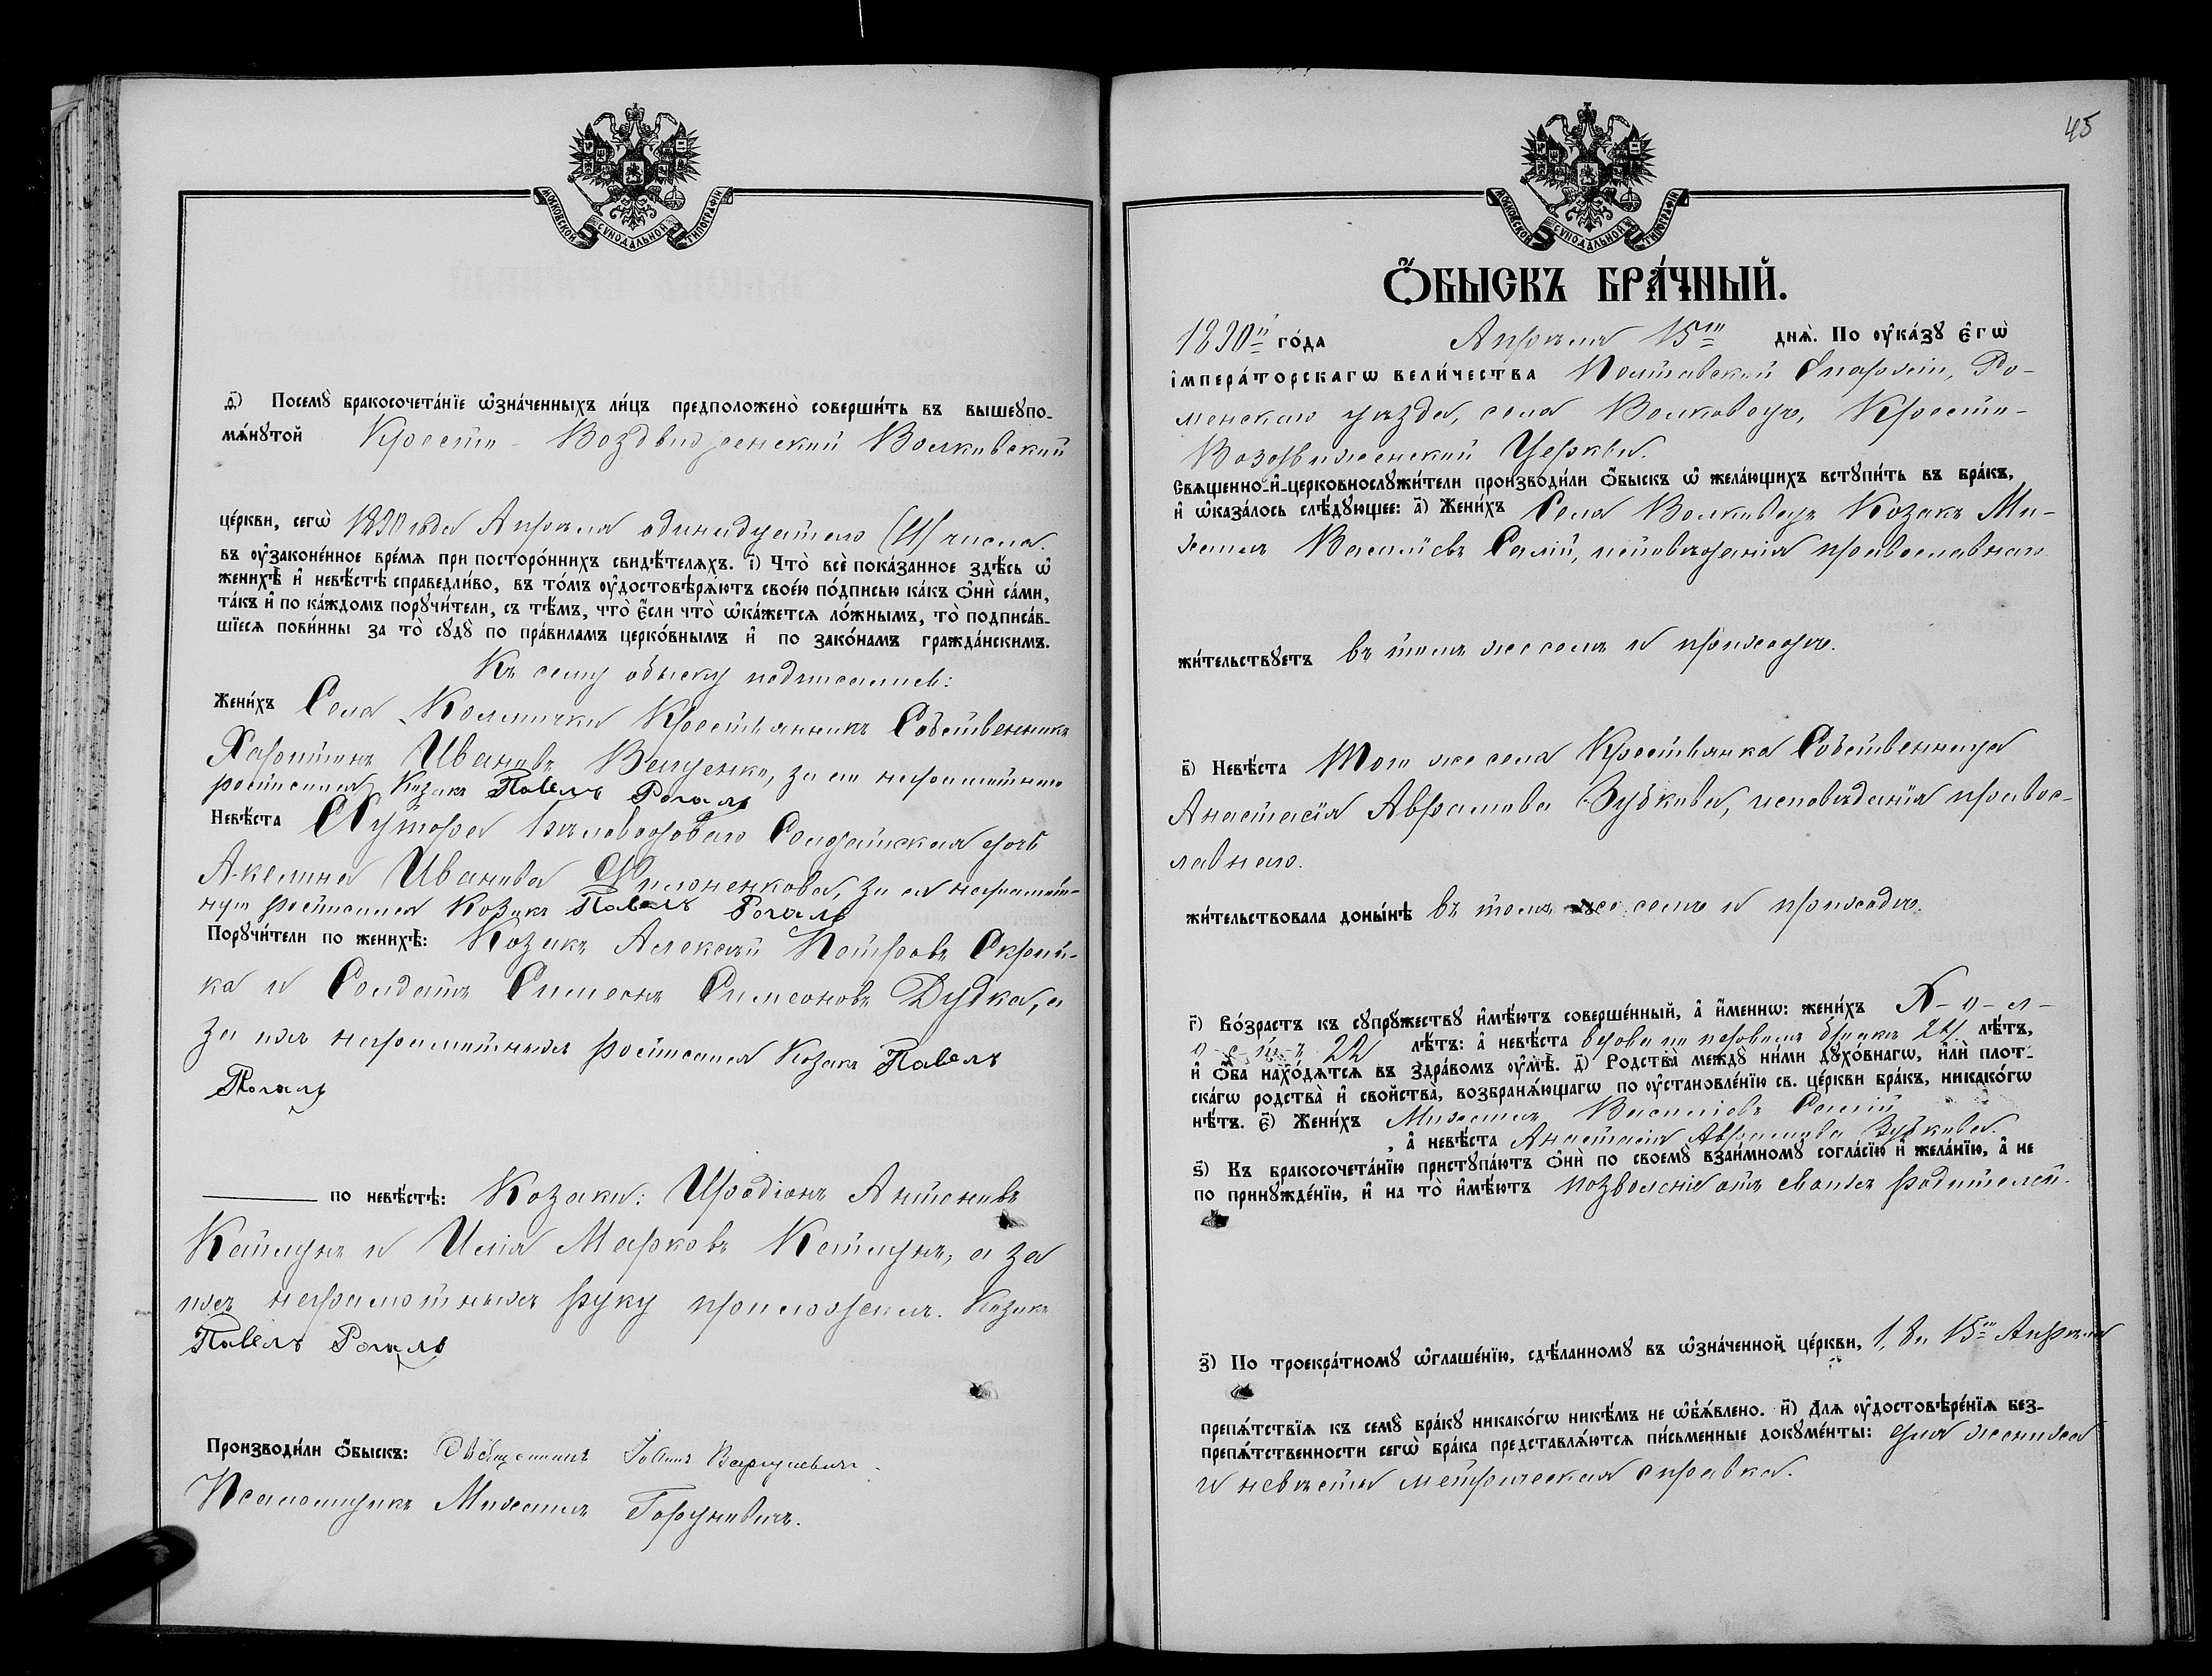 МОСКОВСКОЙ СѴНОДАЛЬНОЙ ТИПОГРАФІИ
д҃) Посемꙋ̀ бракосочета́нїе ѡ҆зна́ченныхъ ли́цъ предположено̀ соверши́ть въ вышеꙋпо-
мѧ́нꙋтой Кресто-Воздвиженской Волковской
це́ркви, сегѡ̀ 1890 года Апрѣля одинадцатого (11) числа.
въ ᲂу҆законе́нное вре́мѧ при посторо́ннихъ свидѣ́телѧхъ. і҃) Что̀ всѐ пока́занное здѣ́сь ѡ҆
женихѣ̀ и҆ невѣ́стѣ справедли́во, въ то́мъ ᲂу҆достовѣрѧ́ютъ свое́ю по́дписью ка́къ ѻ҆нѝ са́ми,
та́къ и҆ по ка́ждомъ порꙋчи́тели, съ тѣ́мъ, что̀ є҆́сли что̀ ѡ҆ка́жетсѧ ло́жнымъ, то̀ подписа́в-
шїесѧ пови́нны за то̀ сꙋдꙋ̀ по пра́виламъ церко́внымъ и҆ по зако́намъ гражда́нскимъ.
Къ сему обыску подписались:
Жени́хъ Села Коллички Крестьянинъ Собственникъ
Харитонъ Ивановъ Вещенко, за его неграмотного
росписался Козакъ Павелъ Рогаль
Невѣ́ста Хутора Бѣловодского Солдатская дочь
Акелина Иванова Филоненкова, за ея неграмот-
ную росписался Козакъ Павелъ Рогаль
Порꙋчи́тели по женихѣ̀: Козакъ Алексѣй Петровъ Скрип-
ка и Солдатъ Симеонъ Симеоновъ Дудка, а
за ихъ неграмотныхъ росписался Козакъ Павелъ
Рогаль
по невѣ́стѣ: Козаки: Иродіонъ Антоновъ
Катлунъ и Илія Марковъ Катлунъ, а за
ихъ неграмотныхъ руку приложилъ. Козакъ
Павелъ Рогаль
Производи́ли ѻ҆́быскъ: Священникъ Іоаннъ
Псаломщикъ Михаилъ Горуновичъ.
45
МОСКОВСКОЙ СѴНОДАЛЬНОЙ ТИПОГРАФІИ
Ѻ҆́БЫСКЪ БРА́ЧНЫЙ.
1890го го́да Апрѣля 15го днѧ̀. По ᲂу҆ка́зꙋ є҆гѡ̀
і҆мпера́торскагѡ вели́чества Полтавской Епархіи, Ро-
менскаго уѣзда, села Волковецъ, Кресто-
Воздвиженской Церкви.
Свѧщенно-и҆-церковнослꙋжи́тели производи́ли ѻ҆́быскъ ѡ҆ жела́ющихъ встꙋпи́ть въ бра́къ,
и҆ ѡ҆каза́лось слѣ́дꙋющее: а҃) Жени́хъ Села Волковецъ Козакъ Ми-
хаилъ Василіевъ Салій, исповѣданія православнаго
жи́тельствꙋетъ въ томъ же селѣ и приходѣ.
в҃) Невѣ́ста Того же села Крестьянка Собственница
Анастасія Аврамова Зубкова, исповѣданія правос-
лавнаго.
жи́тельствовала доны́нѣ въ томъ же селѣ и приходѣ.
г҃) Во́зрастъ къ сꙋпрꙋ́жествꙋ и҆мѣ́ютъ соверше́нный, а҆ и҆́меннѡ: жени́хъ Х-о-л-
о-с-т-ъ 22 лѣ́тъ: а҆ невѣ́ста вдова по первомъ бракѣ 24 лѣ́тъ,
и҆ ѻ҆́ба нахо́дѧтсѧ въ здра́вомъ ᲂу҆мѣ̀. д҃) Родства̀ междꙋ̀ ни́ми дꙋхо́внагѡ, и҆лѝ плот-
ска́гѡ родства̀ и҆ сво́йства, возбранѧ́ющагѡ по ᲂу҆становле́нїю св. це́ркви бра́къ, никако́гѡ
нѣ́тъ. є҃) Жени́хъ Михаилъ Василіевъ Салій
, а҆ невѣ́ста Анастасія Аврамова Зубкова.
ѕ҃) Къ бракосочета́нїю пристꙋпа́ютъ ѻ҆нѝ по своемꙋ̀ взаи́мномꙋ согла́сїю и҆ жела́нїю, а҆ не
по принꙋжде́нїю, и҆ на то̀ и҆мѣ́ютъ позволеніе отъ своихъ родителей.
з҃) По троекра́тномꙋ ѡ҆глаше́нїю, сдѣ́ланномꙋ въ ѡ҆зна́ченной це́ркви, 1, 8 и 15го Апрѣля
препѧ́тствїѧ къ семꙋ̀ бра́кꙋ никако́гѡ никѣ́мъ не ѡ҆б̾ѧ́влено. и҃) Длѧ ᲂу҆достовѣре́нїѧ без-
препѧ́тственности сегѡ̀ бра́ка представлѧ́ютсѧ пи́сьменные докꙋме́нты: для жениха
и невѣсты метрическая справка.